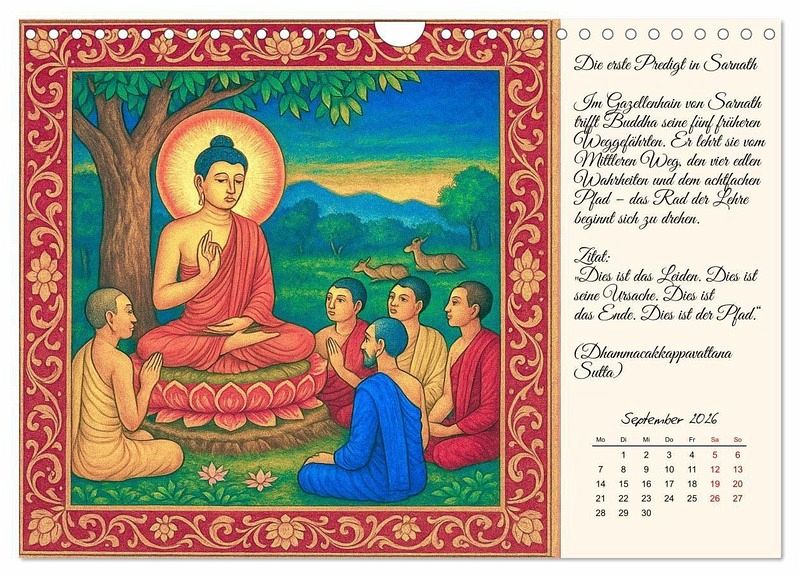 Die erste Predigt in Sarnath
Im Gazellenhain von Sarnath
trifft Buddha seine fünf früheren
Weggefährten. Er lehrt sie vom
Mittleren Weg, den vier edlen
Wahrheiten und dem achtfachen
Pfad – das Rad der Lehre
beginnt sich zu drehen.
Zitat:
"Dies ist das Leiden. Dies ist
seine Ursache. Dies ist
das Ende. Dies ist der Pfad."
(Dhammacakkappavattana
Sutta)
September 2026
Mo Di Mi Do Fr Sa So
1 2 3 4 5 6
7 8 9 10 11 12 13
14 15 16 17 18 19 20
21 22 23 24 25 26 27
28 29 30